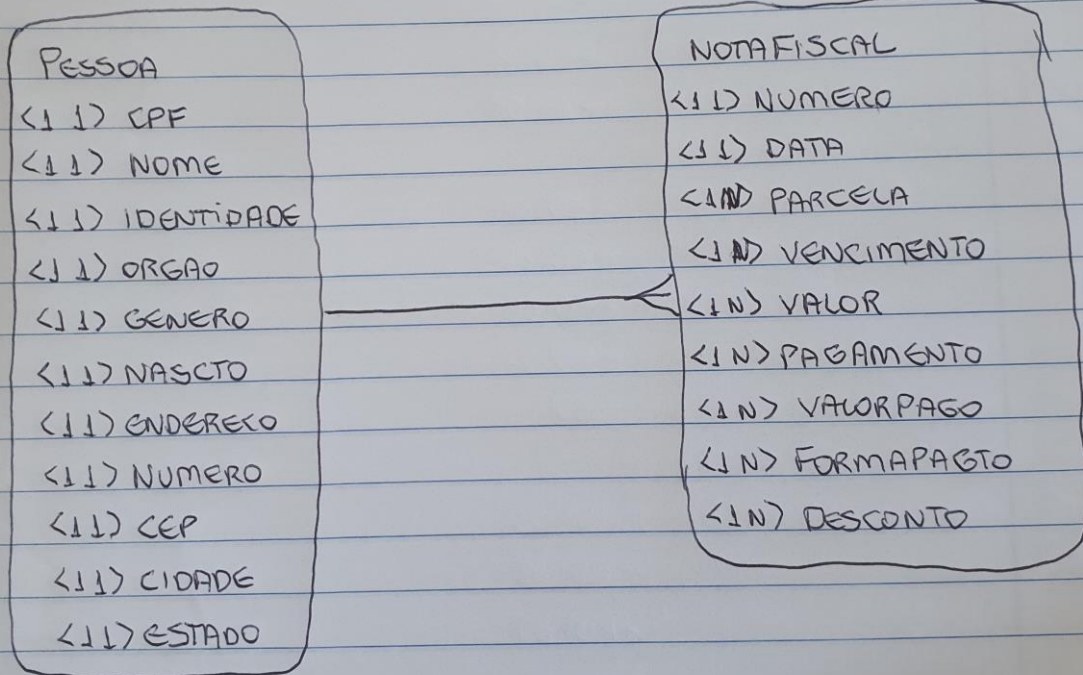 PESSOA
<1 1> CPF
<1 1> NOME
<1 1> IDENTIDADE
<1 1> ORGAO
<1 1> GENERO
<1 1> NASCTO
<1 1> ENDERECO
<1 1> NUMERO
<1 1> CEP
<1 1> CIDADE
<1 1> ESTADO
NOTAFISCAL
<1 1> NUMERO
<1 1> DATA
<1 N> PARCELA
<1 N> VENCIMENTO
<1 N> VALOR
<1 N> PAGAMENTO
<1 N> VALORPAGO
<1 N> FORMAPAGTO
<1 N> DESCONTO